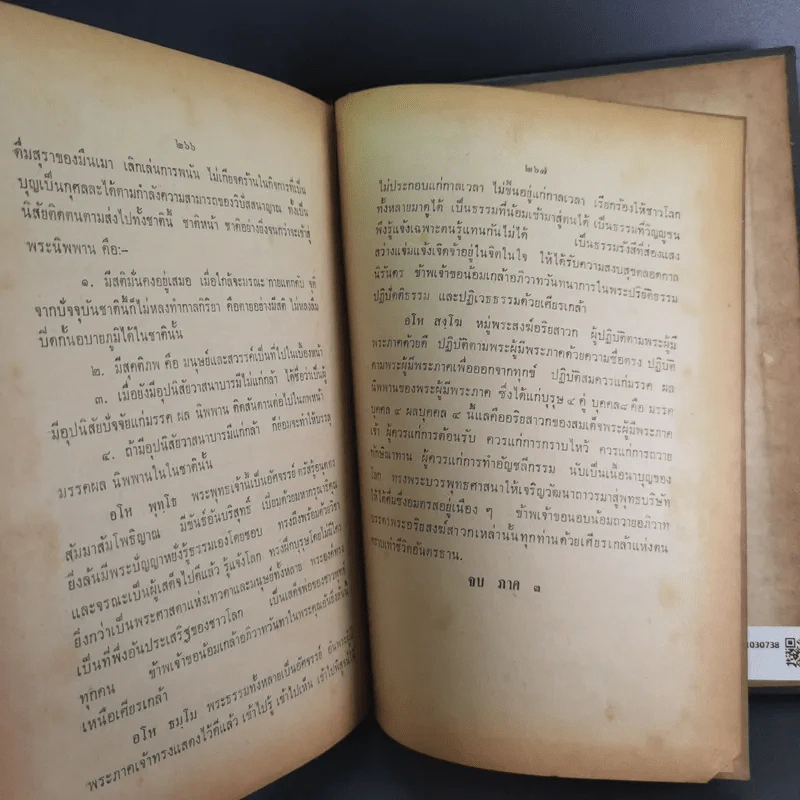 ๒๖๖
ดื่มสุราของมึนเมา เลิกเล่นการพนัน ไม่เกียจคร้านในกิจการที่เป็น
บุญเป็นกุศลละได้ตามกำลังความสามารถของวิปัสสนาญาณ ทั้งเป็น
นิสัยติดตนตามส่งไปทั้งชาตินี้ ชาติหน้า ชาติอย่างยิ่งจนกว่าจะเข้าสู่
พระนิพพาน คือ:-
๑. มีสติมั่นคงอยู่เสมอ เมื่อใกล้จะมรณะ กายแตกดับ จุติ
จากปัจจุบันชาตินี้ก็ไม่หลงทำกาลกิริยา คือตายอย่างมีสติ ไม่หลงลืม
ปิดกั้นอบายภูมิได้ในชาตินั้น
๒. มีสุคติภพ คือ มนุษย์และสวรรค์เป็นที่ไปในเบื้องหน้า
๓. เมื่อยังมีอุปนิสัยวาสนาบารมีไม่แก่กล้า ได้ชื่อว่าเป็นผู้
มีอุปนิสัยปัจจัยแก่มรรค ผล นิพพาน ติดสันดานต่อไปในภพหน้า
๔. ถ้ามีอุปนิสัยวาสนาบารมีแก่กล้า ก็ย่อมจะทำให้บรรลุ
มรรคผล นิพพานในในชาตินั้น
อโห พุทฺโธ พระพุทธเจ้านี้เป็นอัศจรรย์ ตรัสรู้อนุตตร
สัมมาสัมโพธิญาณ มีขันธ์อันบริสุทธิ์ เปี่ยมด้วยมหากรุณาธิคุณ
ยิ่งล้นมีพระปัญญาหยั่งรู้ธรรมเองโดยชอบ ทรงถึงพร้อมด้วยวิชา
และจรณะเป็นผู้เสด็จไปดีแล้ว รู้แจ้งโลก ทรงฝึกบุรุษโดยไม่มีใคร
ยิ่งกว่าเป็นพระศาสดาแห่งเทวดาและมนุษย์ทั้งหลาย
เป็นที่พึ่งอันประเสริฐของชาวโลก เป็นเสด็จพ่อของชาวพุทธ
ทุกคน ข้าพเจ้าขอน้อมเกล้าอภิวาทวันทาในพระคุณอันยิ่ง
เหนือเศียรเกล้า
อโห ธมฺโม พระธรรมทั้งหลายเป็นอัศจรรย์ อันพระผู้มี
พระภาคเจ้าทรงแสดงไว้ดีแล้ว เข้าไปรู้ เข้าไปเห็น
๒๖๗
ไม่ประกอบแก่กาลเวลา ไม่ขึ้นอยู่แก่กาลเวลา เรียกร้องให้ชาวโลก
ทั้งหลายมาดูได้ เป็นธรรมที่น้อมเข้ามาสู่ตนได้ เป็นธรรมที่วิญญูชน
พึงรู้แจ้งเฉพาะตนรู้แทนกันไม่ได้ เป็นธรรมรังสีที่ส่องแสง
สว่างแจ่มแจ้งเจิดจ้าอยู่ในจิตในใจ ให้ได้รับความสงบสุขตลอดกาล
นิรันดร ข้าพเจ้าขอน้อมเกล้าอภิวาทวันทนาการในพระปริยัติธรรม
ปฏิบัติธรรม และปฏิเวธธรรมด้วยเศียรเกล้า
อโห สงฺโฆ หมู่พระสงฆ์อริยสาวก ผู้ปฏิบัติตามพระผู้มี
พระภาคด้วยดี ปฏิบัติตามพระผู้มีพระภาคด้วยความซื่อตรง ปฏิบัติ
ตามพระผู้มีพระภาคเพื่อออกจากทุกข์ ปฏิบัติสมควรแก่มรรค ผล
นิพพานของพระผู้มีพระภาค ซึ่งได้แก่บุรุษ ๔ คู่ บุคคล๘ คือ มรรค
บุคคล ๔ ผลบุคคล ๔ นี้แลคืออริยสาวกของสมเด็จพระผู้มีพระภาค
เจ้า ผู้ควรแก่การต้อนรับ ควรแก่การกราบไหว้ ควรแก่การถวาย
ทักษิณาทาน ผู้ควรแก่การทำอัญชลีกรรม นับเป็นเนื้อนาบุญของ
โลก ทรงพระบวรพุทธศาสนาให้เจริญวัฒนาถาวรมาสู่พุทธบริษัท
ให้ได้ดื่มซึ่งอมตรสอยู่เนือง ๆ ข้าพเจ้าขอนอบน้อมถวายอภิวาท
พระอริยสงฆ์สาวกเหล่านั้นทุกท่านด้วยเศียรเกล้าแห่งตน
ตราบเท่าชีวิตอันตรธาน.
จบ ภาค ๓
1030738